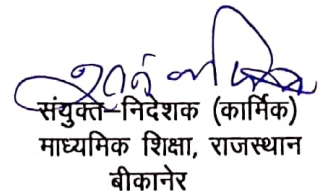 संयुक्त-निदेशक (कार्मिक)
माध्यमिक शिक्षा, राजस्थान
बीकानेर